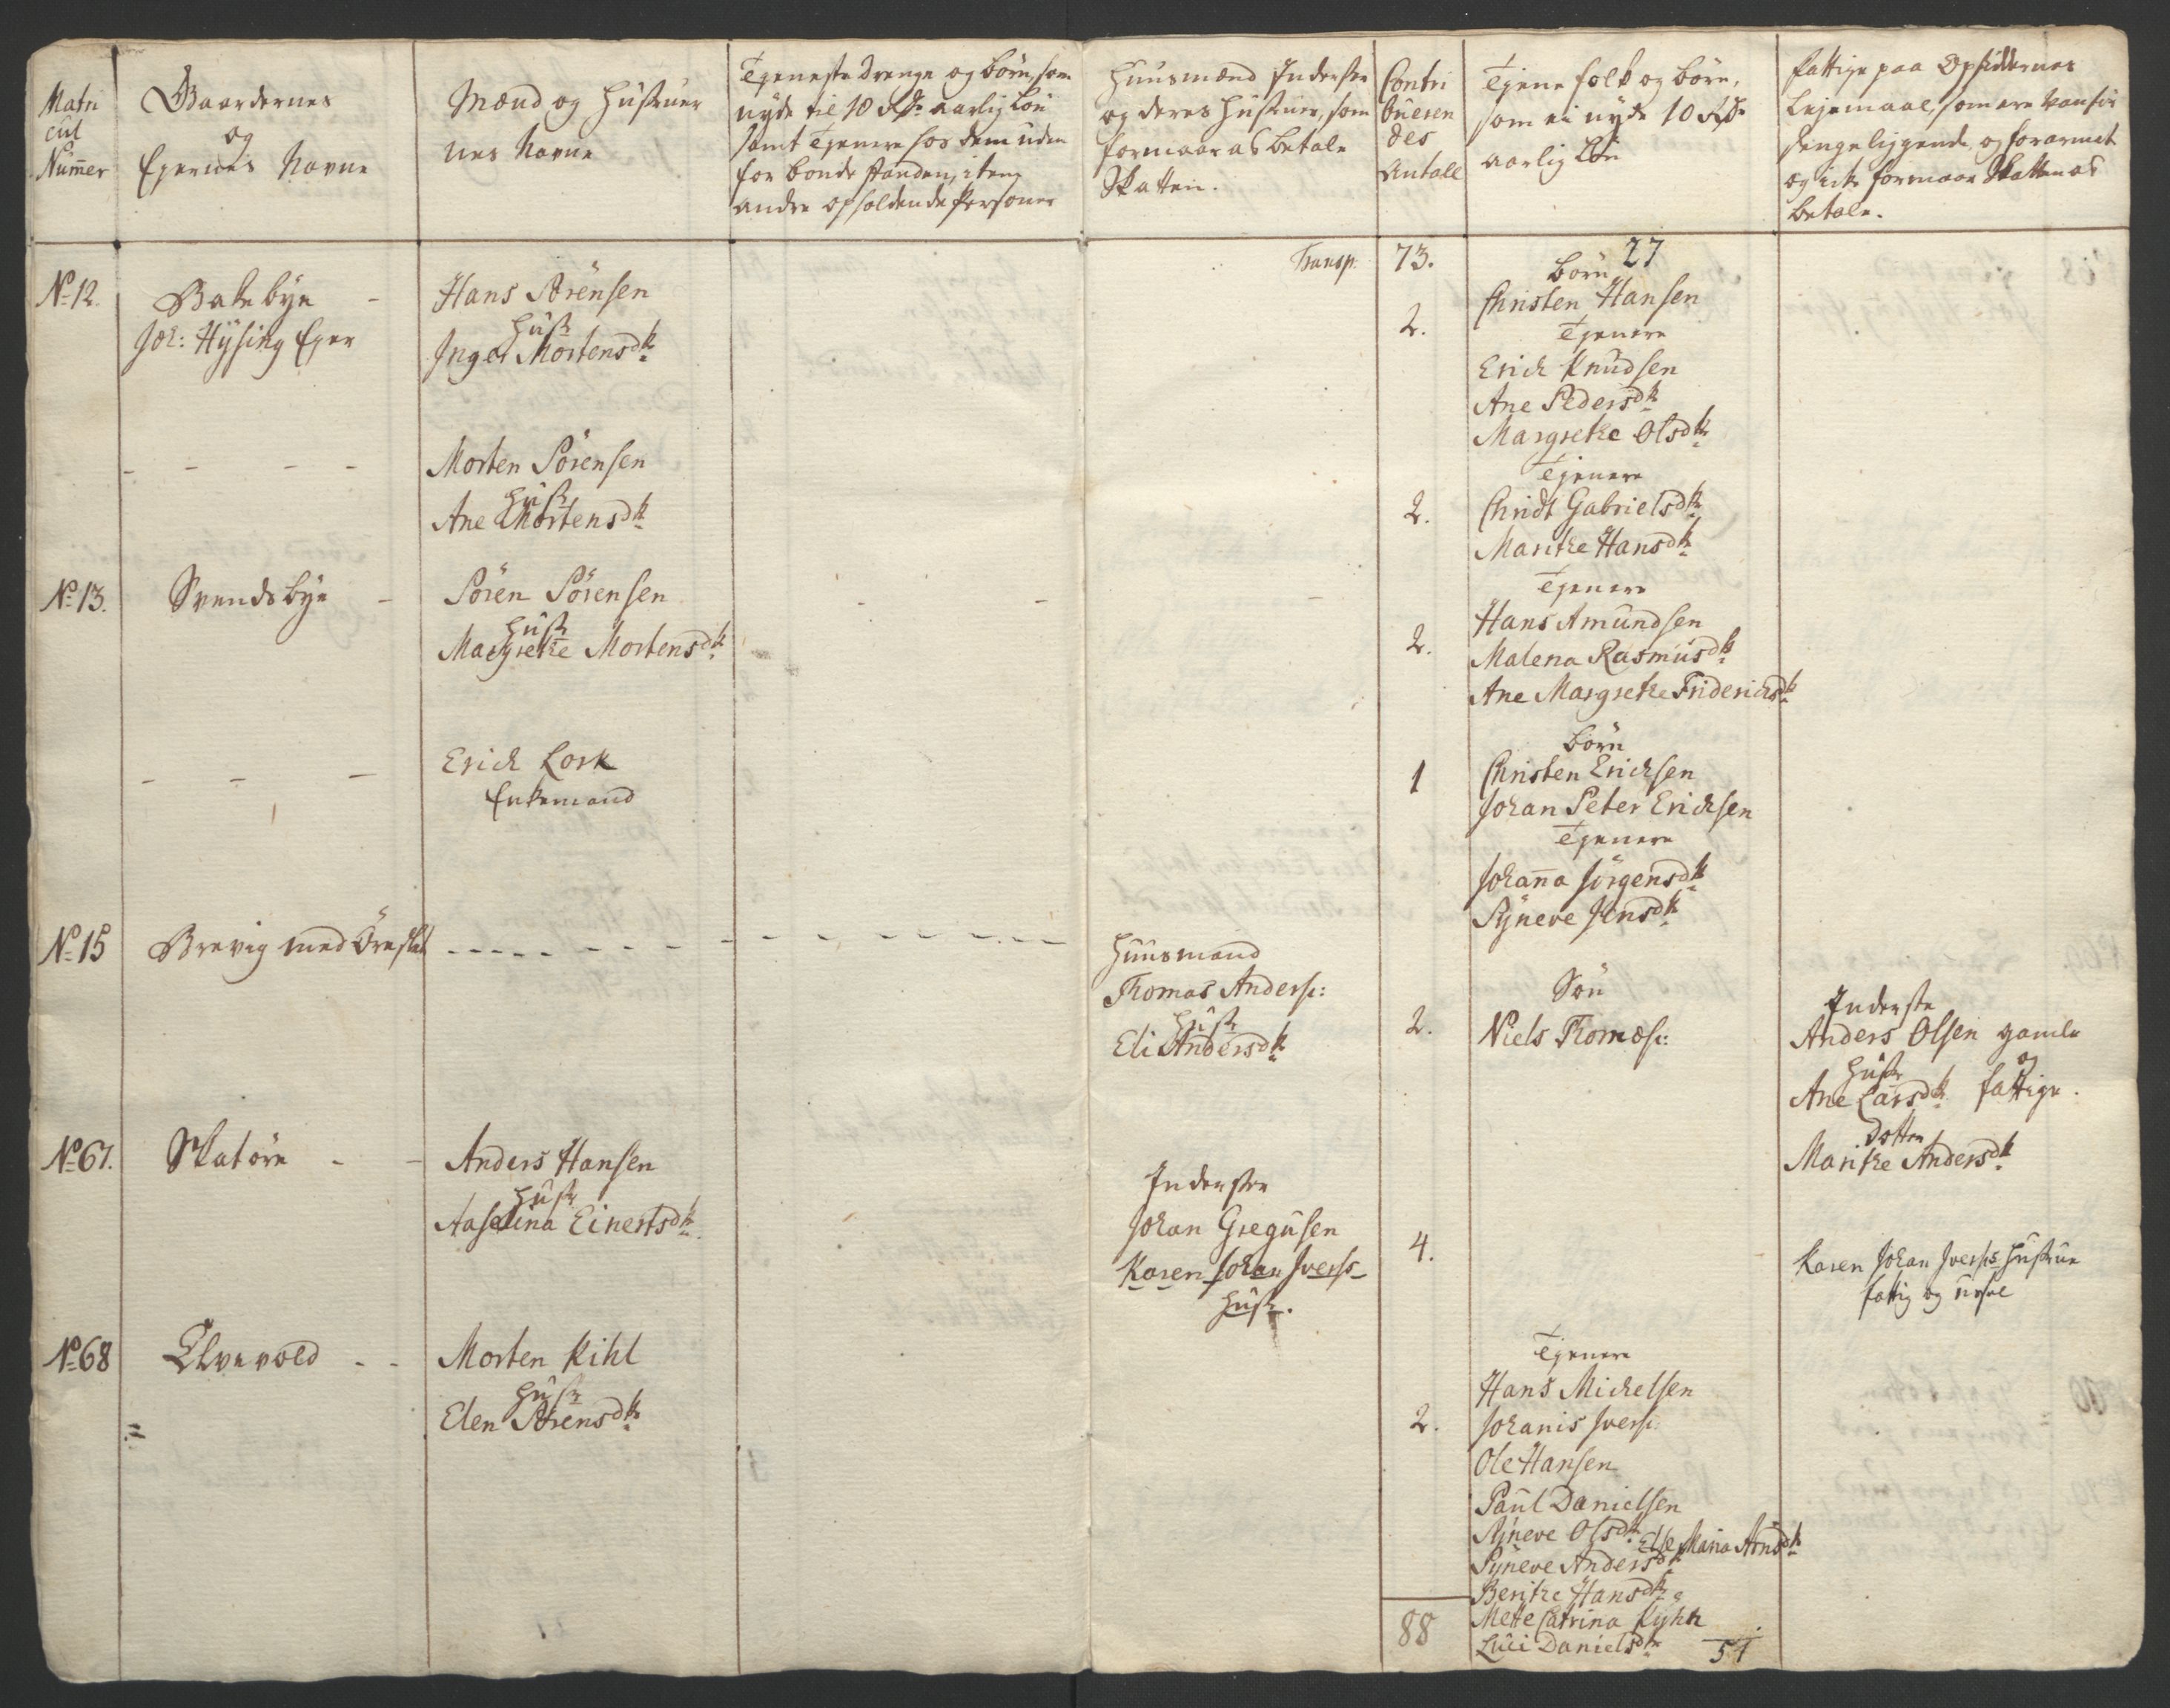 Matri
cul
Nummer
Gaardernes
og
Ejernes Navne
Mænd og Hustruer
nes Navne
Tjeneste Drenge og børn, som
nyde til 10 Rd aarlig Løn
samt Tjenere hos dem uden
for bonde standen, item
andre opholdende Personer
Huusmænd Inderster
og deres Hustruer, som
formaar at betale
Skatten.
Contri
bueren
des
Antall
Tjene folk og børn,
som ei nyde 10 Rd
aarlig Løn
fattige paa Opsiddernes
Lejemaal, som ere
sengeliggende, og forarmet
og icke formaar Skatten at
betale.
Transp. 73. 27
No 12.
Bakebye -
Joh: Hysing Ejer
Hans Sørensen
Hustr
Inger Mortensdtr
2.
børn
Christen Hansen
Tjenere
Erich Knudsen
Ane Pedersdtr
Margrethe Olsdtr
- - - -
Morten Sørensen
Hustr
Ane Mortensdtr
2.
Tjenere
Christ Gabrielsdtr
Marithe Hansdtr
No 13.
Svendsbye -
Søren Sørensen
Hustr
Margrethe Mortensdtr
- - -
2.
Tjenere
Hans Amundsen
Malena Rasmusdtr
Ane Margrethe Friderichsdtr
- - -
Erich Lork
Enkemand
1
børn
Christen Erichsen
Johan Peter Erichsen
Tjenere
Johanna Jörgensdtr
Synneve Jensdtr
No 15
Brevig med Ørnslet - - - - - - - - - - - - -
Huusmand
Thomas Anders:
Hustr
Eli Andersdtr
2.
Søn
Niels Thomas:
Inderste
Anders Olsen gamle
Hustr og
Ane Larsdtr fattige.
dotter
Marithe Andersdtr
No 67.
Skatøre - -
Anders Hansen
Hustr
Aaselina Einertsdtr
Inderster
Johan Gregusen
Karen Johan Iverss
Hustr.
4.
Karen Johan Iverss Hustrue
fattig og usel
No 68
Elvevold - -
Morten Kihl
Hustr
Elen Sørensdtr
2.
Tjenere
Hans Michelsen
Johanis Ivers:
Ole Hansen
Paul Danielsen
Synneve Olsdtr Else Maria Arnsdtr
Synneve Andersdtr
Berithe Hansdtr
Mette Catrina Kyhn
Luci Danielsdtr
88 51